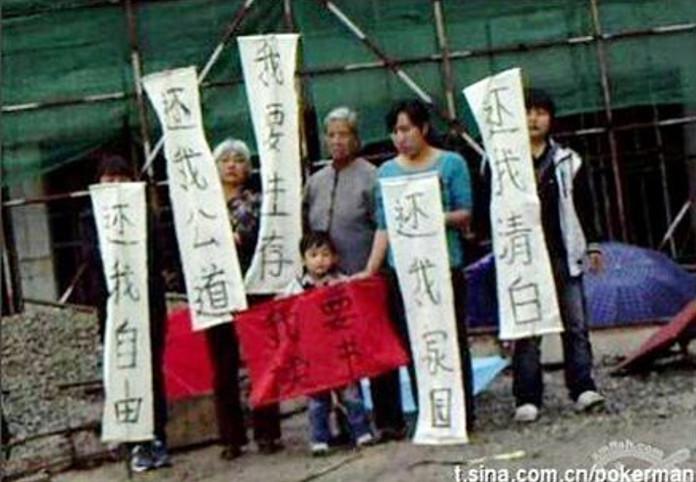 还我自由
还我公道
我要生存
我要
读书
还我家园
还我清白
t.sina.com.cn/pokerman